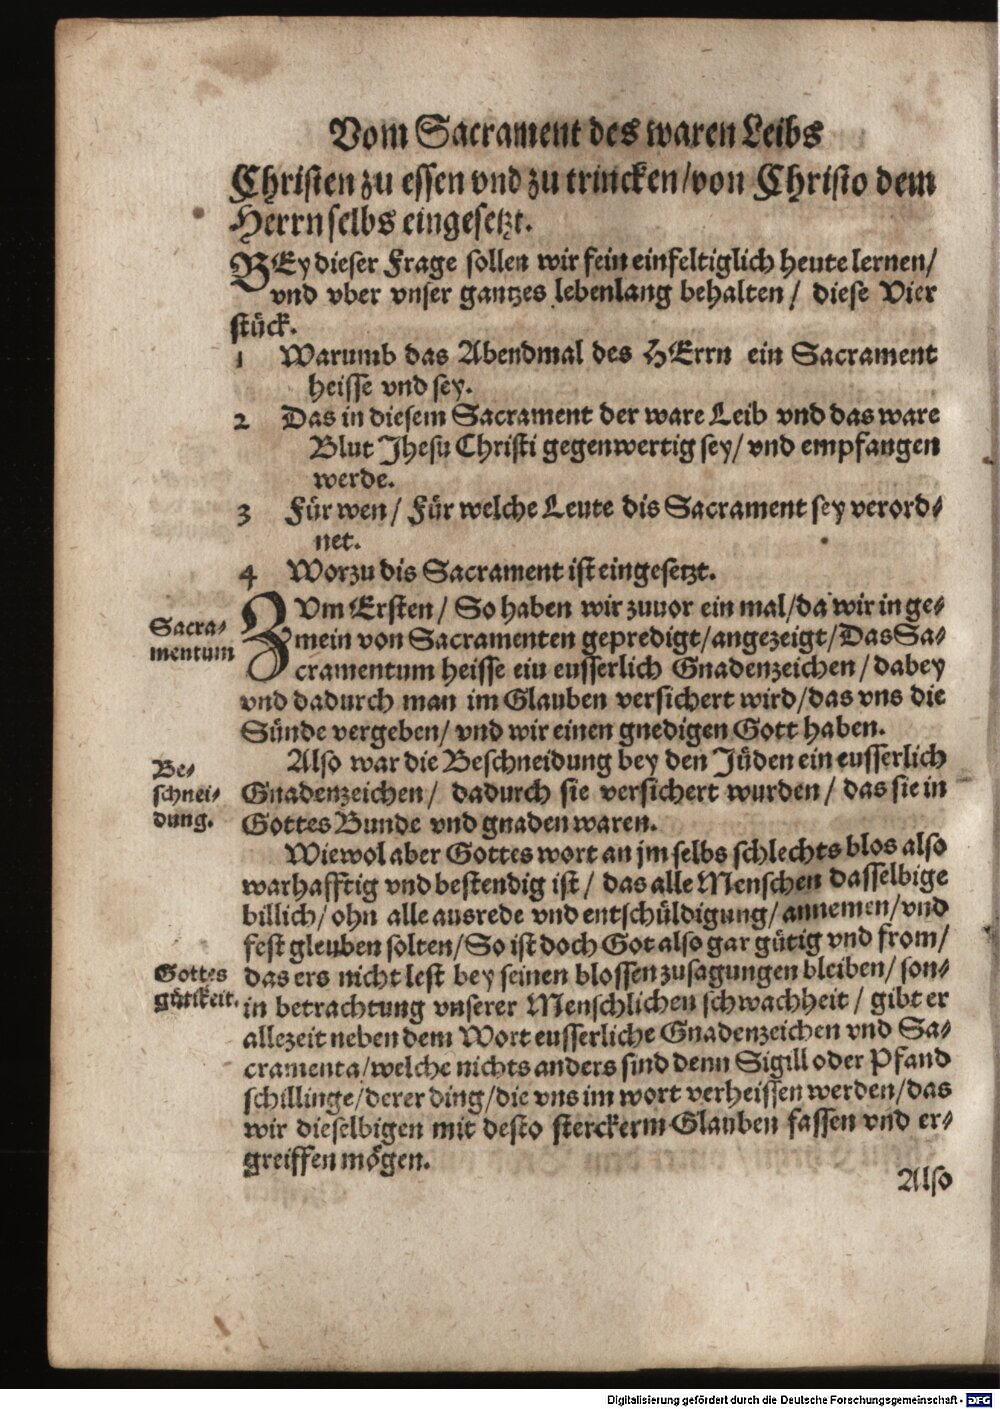 Vom Sacrament des waren Leibs
Christen zu essen vnd zu trincken/von Christo dem
Herrn selbs eingesetzt.
BEy dieser Frage sollen wir fein einfeltiglich heute lernen/
vnd vber vnser gantzes lebenlang behalten/ diese Vier
stück.
1 Warumb das Abendmal des HErrn ein Sacrament
heisse vnd sey.
2 Das in diesem Sacrament der ware Leib vnd das ware
Blut Jhesu Christi gegenwertig sey/ vnd empfangen
werde.
3 Für wen/ Für welche Leute dis Sacrament sey verord-
net.
4 Worzu dis Sacrament ist eingesetzt.
Sacra-
mentum
ZVm Ersten/ So haben wir zuuor ein mal/da wir in ge-
mein von Sacramenten gepredigt/angezeigt/Das Sa-
cramentum heisse eiu eusserlich Gnadenzeichen/dabey
vnd dadurch man im Glauben versichert wird/das vns die
Sünde vergeben/ vnd wir einen gnedigen Gott haben.
Be-
schnei-
dung.
Also war die Beschneidung bey den Jüden ein eusserlich
Gnadenzeichen/ dadurch sie versichert wurden/ das sie in
Gottes Bunde vnd gnaden waren.
Wiewol aber Gottes wort an jm selbs schlechts blos also
warhafftig vnd bestendig ist/ das alle Menschen dasselbige
billich/ohn alle ausrede vnd entschüldigung/annemen/vnd
fest gleuben solten/So ist doch Got also gar gütig vnd from/
Gottes
gütikeit.
das ers nicht lest bey seinen blossen zusagungen bleiben/ son-
in betrachtung vnserer Menschlichen schwachheit/ gibt er
allezeit neben dem Wort eusserliche Gnadenzeichen vnd Sa-
cramenta/welche nichts anders sind denn Sigill oder Pfand
schillinge/derer ding/die vns im wort verheissen werden/das
wir dieselbigen mit desto sterckerm Glauben fassen vnd er-
greiffen mögen.
Also
Digitalisierung gefördert durch die Deutsche Forschungsgemeinschaft - DFG